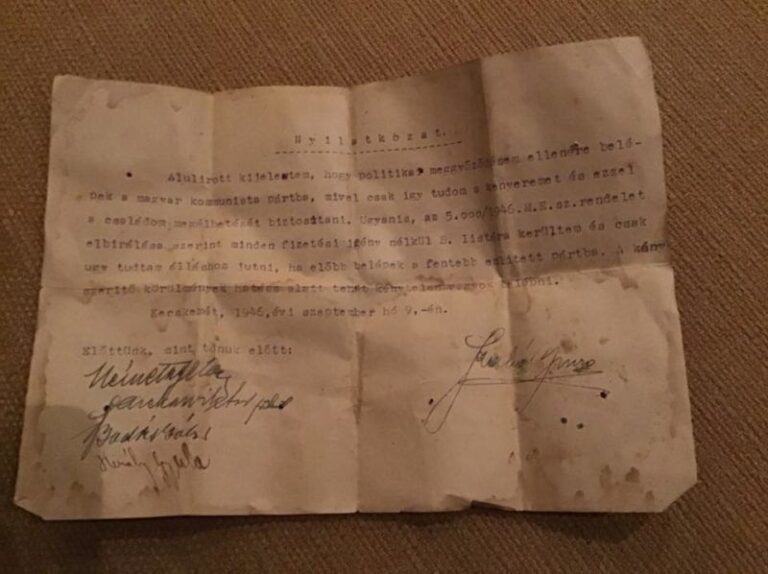 Nyilatkozat.
Alulirott kijelentem, hogy politikai meggyőződésem ellenére belé-
pek a magyar kommunista pártba, mivel csak igy tudom a kenyeremet és ezzel
a családom megélhetését biztositani. Ugyanis, az 5.000/1946.M.E.sz.rendelet
elbirálása szerint minden fizetési igény nélkül B. listára kerültem és csak
ugy tudtam álláshoz jutni, ha előbb belépek a fentebb emlitett pártba. A kény
szeritő körülmények hatása alatt tehát kénytelen vagyok belépni.
Kecskemét, 1946.évi szeptember hó 9.-én.
Előttünk, mint tanuk előtt:
Király Gyula